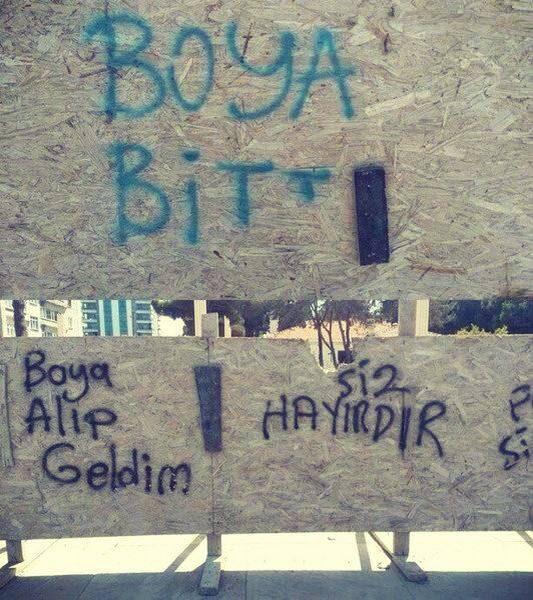 BOYA
BiTT
Boya
Alıp
Geldim
SiZ
HAYIRDIR
Si